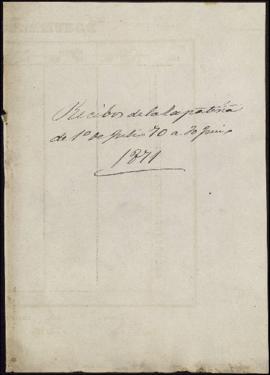 Recibos de la
de 1º de Julio 70 a 30 Juni
1871